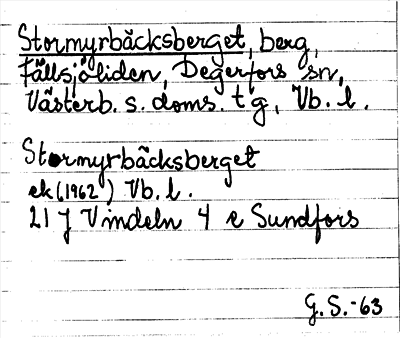 Stormyrbäcksberget, berg,
Fällsjöliden, Degerfors sn,
Västerb. s. doms. tg, Vb. l.
Stormyrbäcksberget
ek (1962) Vb. l.
21 J Vindeln 4 e Sundfors
G. S. -63